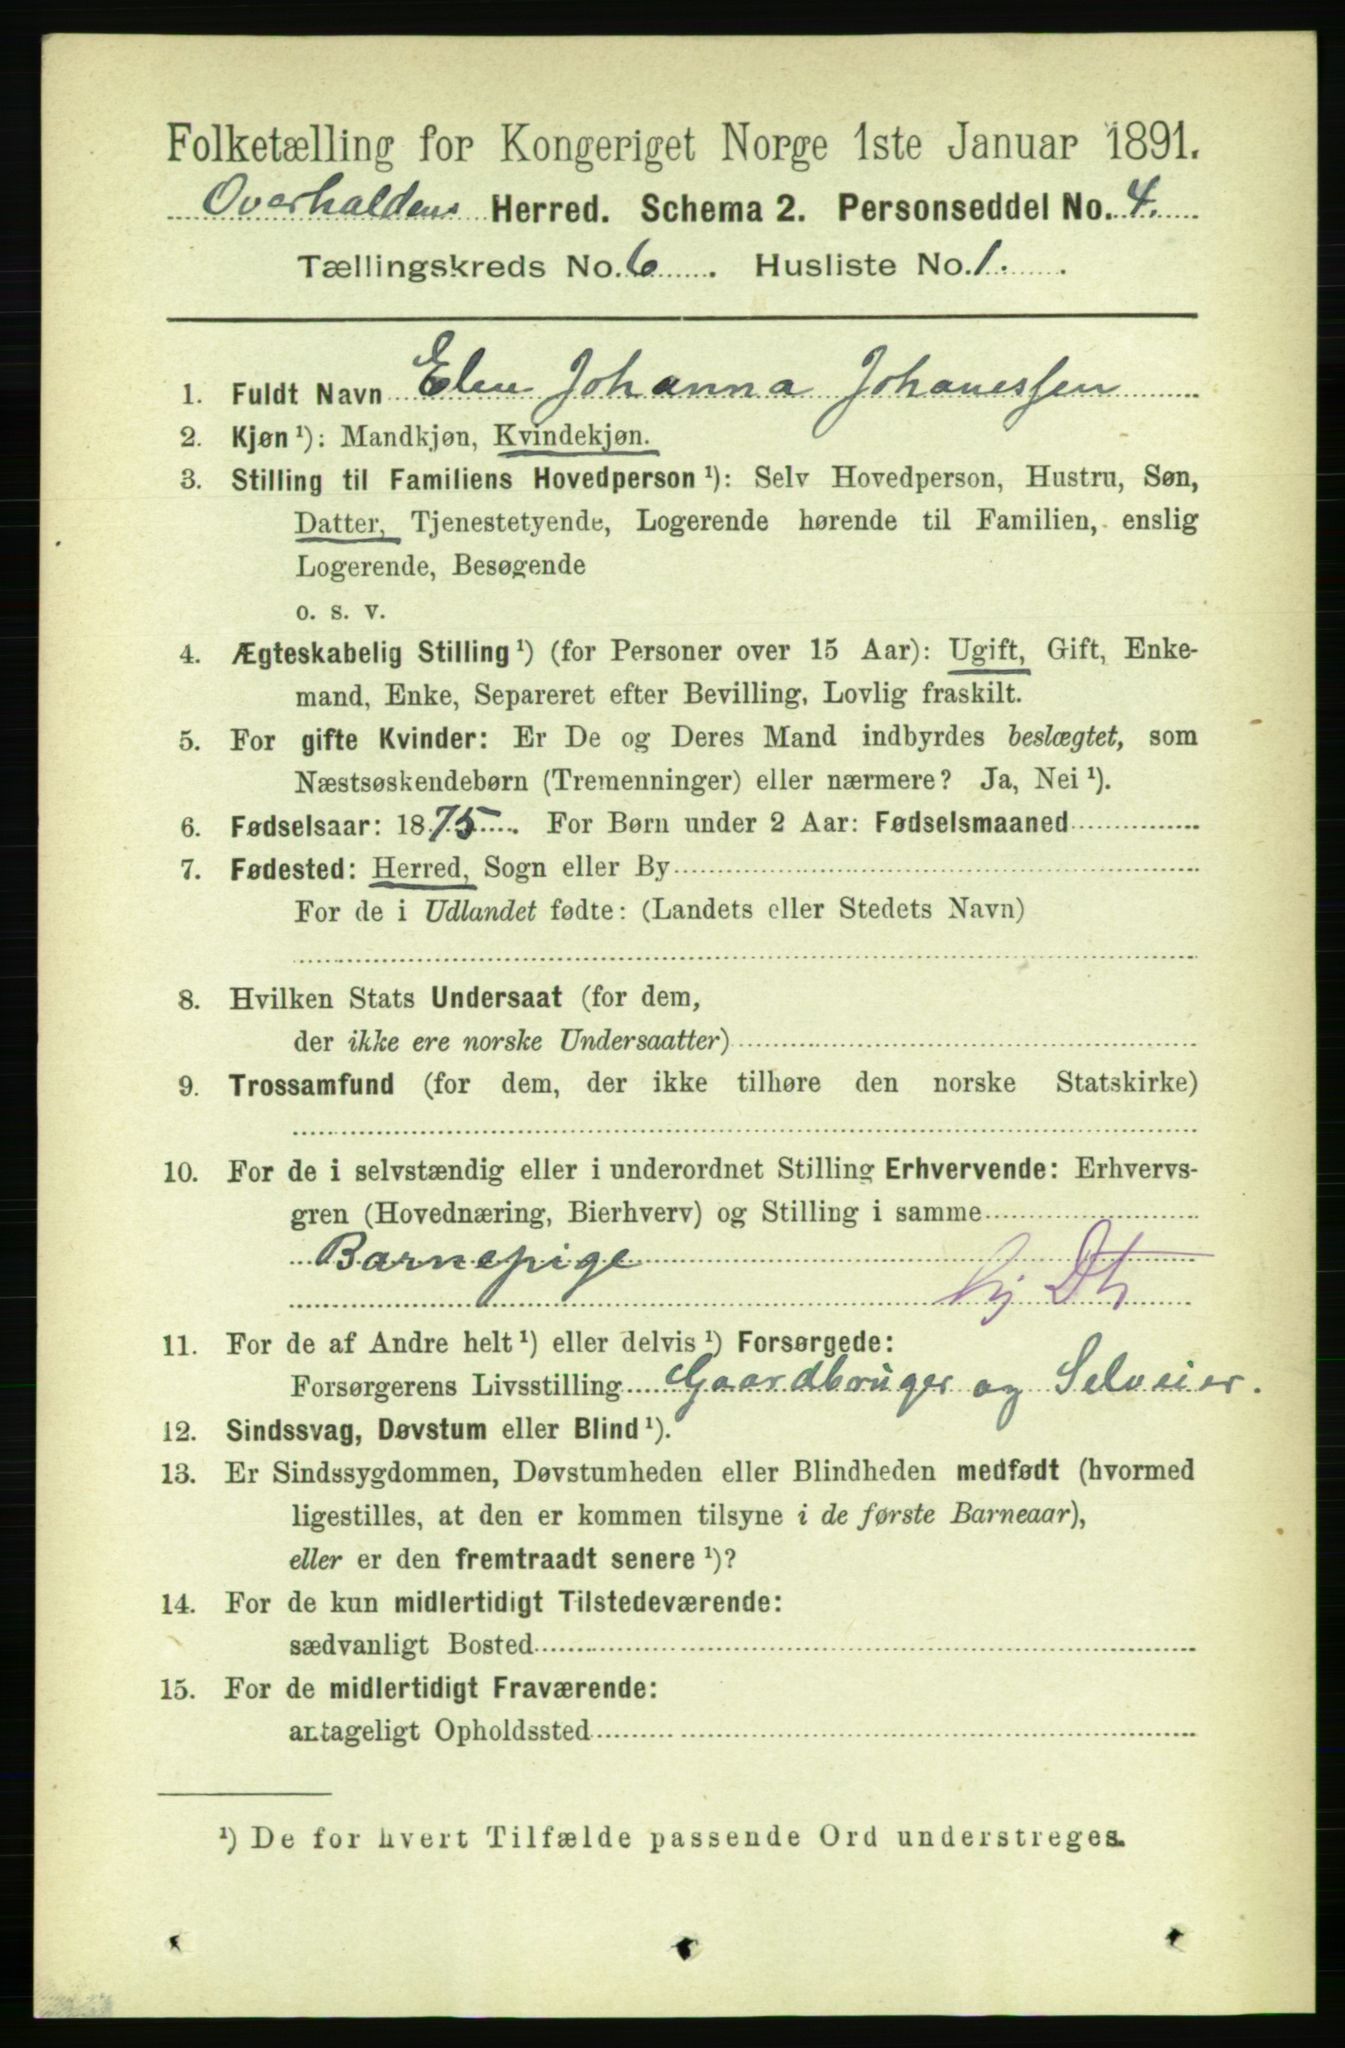 Folketælling for Kongeriget Norge 1ste Januar 1891.
Overhaldens Herred. Schema 2. Personseddel No. 4.
Tællingskreds No. 6. Husliste No. 1.
1. Fuldt Navn Elen Johanna Johanessen
2. Kjøn ¹): Mandkjøn, Kvindekjøn.
3. Stilling til Familiens Hovedperson ¹): Selv Hovedperson, Hustru, Søn,
Datter, Tjenestetyende, Logerende hørende til Familien, enslig
Logerende, Besøgende
o. s. v.
4. Ægteskabelig Stilling ¹) (for Personer over 15 Aar): Ugift, Gift, Enke-
mand, Enke, Separeret efter Bevilling, Lovlig fraskilt.
5. For gifte Kvinder: Er De og Deres Mand indbyrdes beslægtet, som
Næstsøskendebørn (Tremenninger) eller nærmere? Ja, Nei ¹).
6. Fødselsaar: 1875. For Børn under 2 Aar: Fødselsmaaned
7. Fødested: Herred, Sogn eller By
For de i Udlandet fødte: (Landets eller Stedets Navn)
8. Hvilken Stats Undersaat (for dem,
der ikke ere norske Undersaatter)
9. Trossamfund (for dem, der ikke tilhøre den norske Statskirke)
10. For de i selvstændig eller i underordnet Stilling Erhvervende: Erhvervs-
gren (Hovednæring, Bierhverv) og Stilling i samme
Barnepige
11. For de af Andre helt ¹) eller delvis ¹) Forsørgede:
Forsørgerens Livsstilling Gaardbruger og Selveier.
12. Sindssvag, Døvstum eller Blind ¹).
13. Er Sindssygdommen, Døvstumheden eller Blindheden medfødt (hvormed
ligestilles, at den er kommen tilsyne i de første Barneaar),
eller er den fremtraadt senere ¹)?
14. For de kun midlertidigt Tilstedeværende:
sædvanligt Bosted
15. For de midlertidigt Fraværende:
antageligt Opholdssted
¹) De for hvert Tilfælde passende Ord understreges.